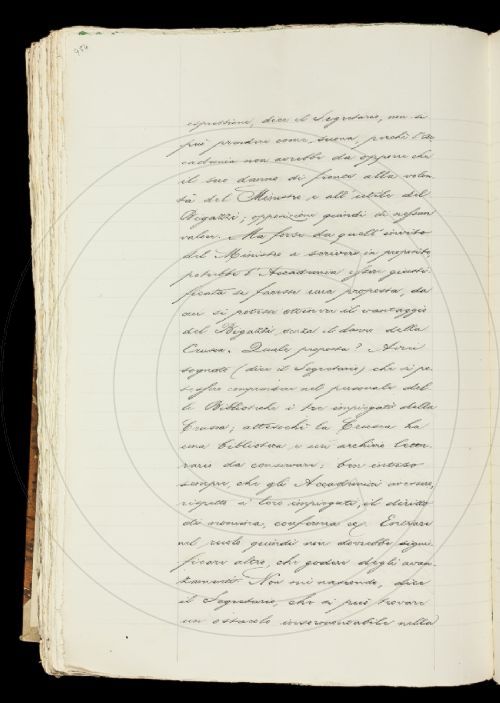 954
espressione, dice il Segretario, non si
può prendere come suona, perchè l'Ac
cademia non avrebbe da opporre che
il suo danno di fronte alla volon
tà del Ministro e all'utile del
Bigazzi; opposizione quindi di nessun
valore. Ma forse da quell'invito
del Ministro a scrivere in proposito,
potrebbe l'Accademia esser giusti
ficata se facesse una proposta, da
cui si potesse ottenere il vantaggio
del Bigazzi senza il danno della
Crusca. Quale proposta? Avrei
sognato (dice il Segretario) che si po
tessero comprendere nel personale del
le Biblioteche i tre impiegati della
Crusca; attesochè la Crusca ha
una biblioteca e un archivio lette
rario da conservare; ben inteso
sempre, che gli Accademici avessero,
rispetto a' loro impiegati, il diritto
di nomina, conferma ec. Entrare
nel ruolo quindi non dovrebbe signi
ficare altro, che godere degli avan
zamenti. Non mi nascondo, dice
il Segretario, che si può trovare
un ostacolo insormontabile nella